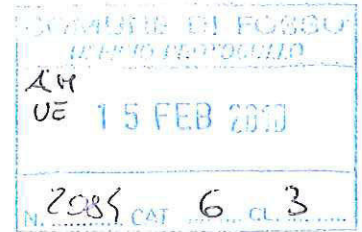 COMUNE DI FOSSO'
UFFICIO PROTOCOLLO
AM
UE 15 FEB 2010
N. 2084 CAT 6 CL. 3